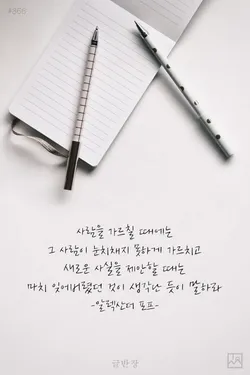 #366
사람을 가르칠 때에는
그 사람이 눈치채지 못하게 가르치고
새로운 사실을 제안할 때는
마치 잊어버렸던 것이 생각난 듯이 말하라
-알렉산더 포프-
글반장